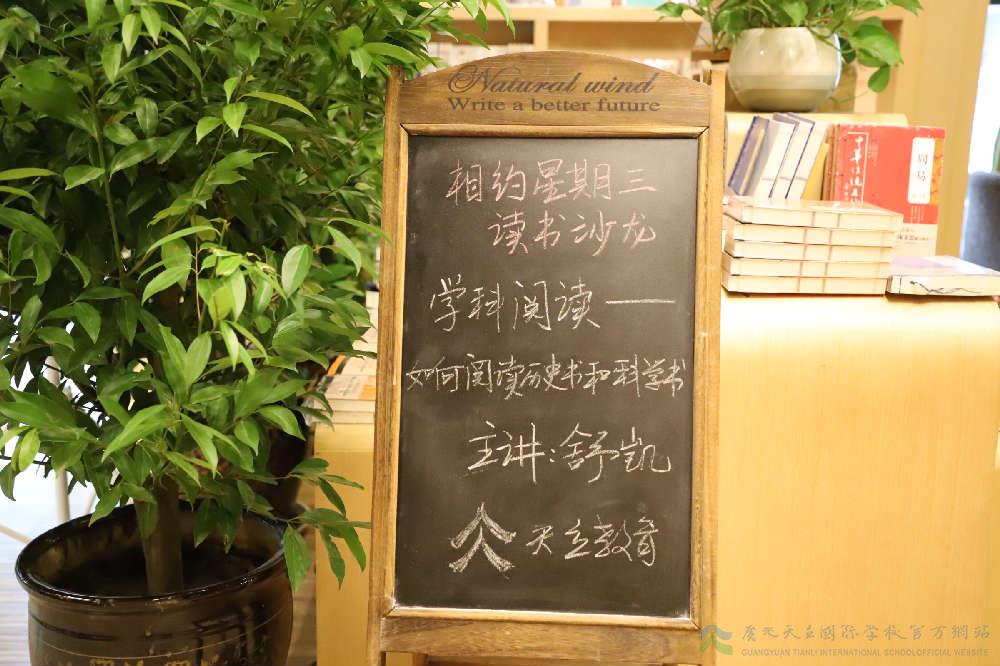 Natural wind
Write a better future
相约星期三
读书沙龙
学科阅读——
如何阅读历史书和科学书
主讲:舒凯
天立教育
周易
广元天立國际学校官方網站
GUANGYUAN TIANLI INTERNATIONAL SCHOOLOFFICIAL WEBSITE